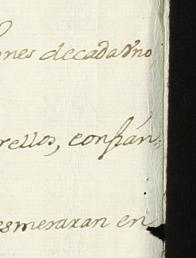 ones de cada Vno
rellos, confian,
esmeraran en